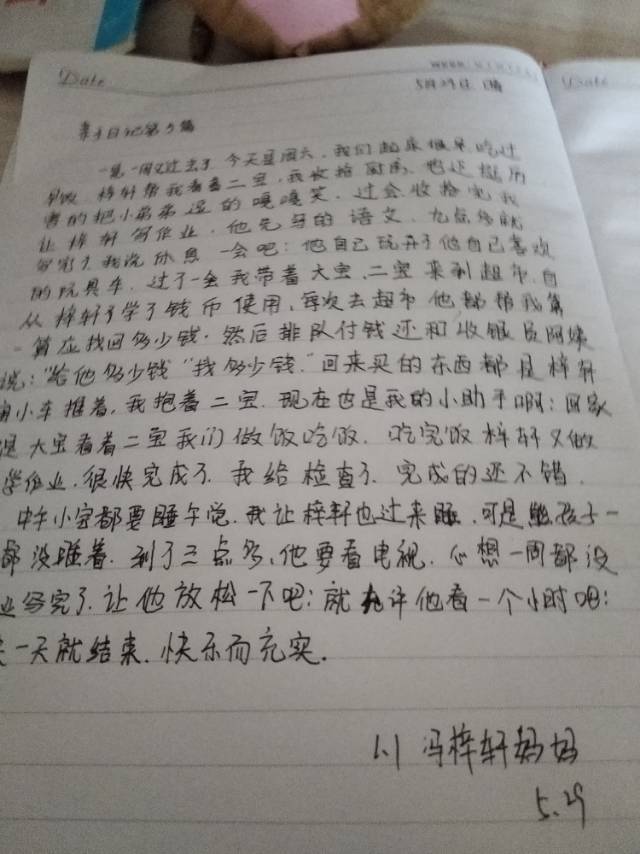 Date
5月29日 晴
Date
亲子日记第5篇
一晃一周又过去了 今天是周六,我们起来很早,吃过
早饭 梓轩帮我看着二宝,我收拾厨房,他还挺厉
害的把小弟弟逗的嘎嘎笑,过会收拾完我
让梓轩写作业,他先写的语文,九点多就
写完了,我说休息一会吧:他自己玩开了他自己喜欢
的玩具车,过了一会我带着大宝、二宝来到超市,自
从梓轩了学了钱币使用,每次去超市他都帮我算
一算应找回多少钱.然后排队付钱还和收银员阿姨
说:"给他多少钱""找多少钱."回来买的东西都是梓轩
用小车推着,我抱着二宝.现在也是我的小助手啊:回家
是大宝看着二宝我们做饭吃饭.吃完饭梓轩又做
学作业,很快完成了.我给检查了.完成的还不错.
中午小宝都要睡午觉.我让梓轩也过来睡.可是孩子一
都没睡着.到了三点多,他要看电视.心想一周都没
业写完了.让他放松一下吧:就允许他看一个小时吧:
一天就结束.快乐而充实.
1.1 冯梓轩妈妈
5.29